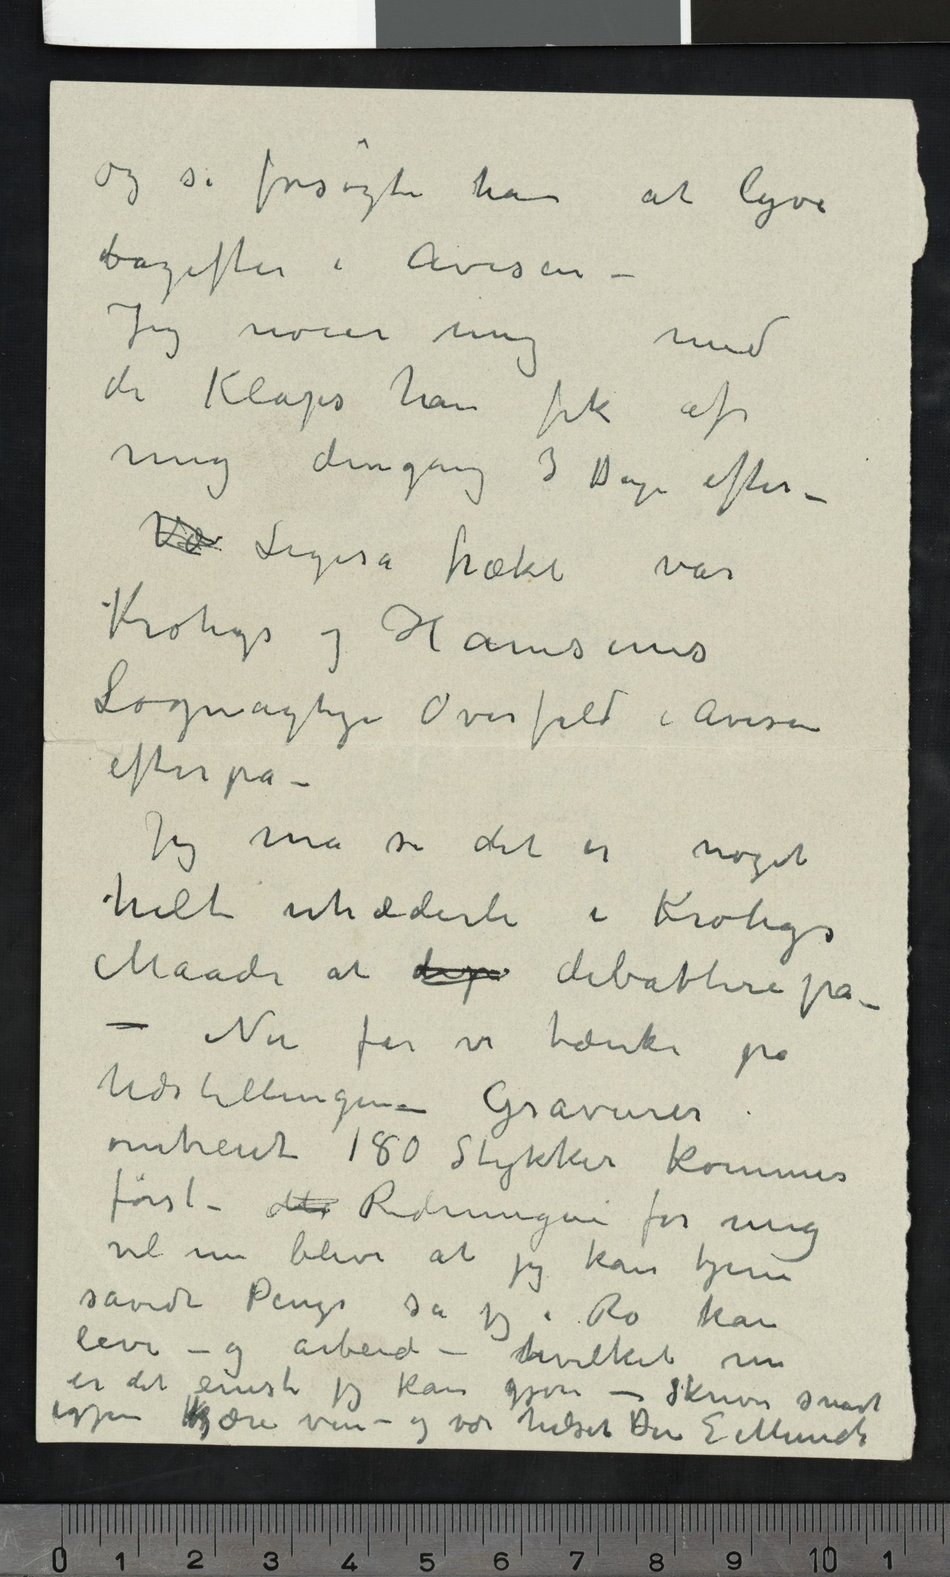 og så forsøgte han at lyve
bagefter i Avisen –
Jeg nøier mig med
de Klaps han fik af
mig dengang 3 Dage efter –
Ligeså frækt var
Krohgs og Hansens
Løgnagtige Overfald i Avisen
efterpå –
Jeg må si det er noget
helt uhæderli i Krohgs
Maade at debattere på –
– Nu får vi tænke på
Udstillingen – Gravurer
omtrent 180 Stykker kommer
først – Redningen for mig
vil nu blive at jeg kan tjene
såvidt Penge så jeg i Ro kan
leve – og arbeid – hvilket nu
er det eneste jeg kan gjøre – Skriv snart
igjen Kjære ven – og vær hilset Din E Munch
0 1 2 3 4 5 6 7 8 9 10 1